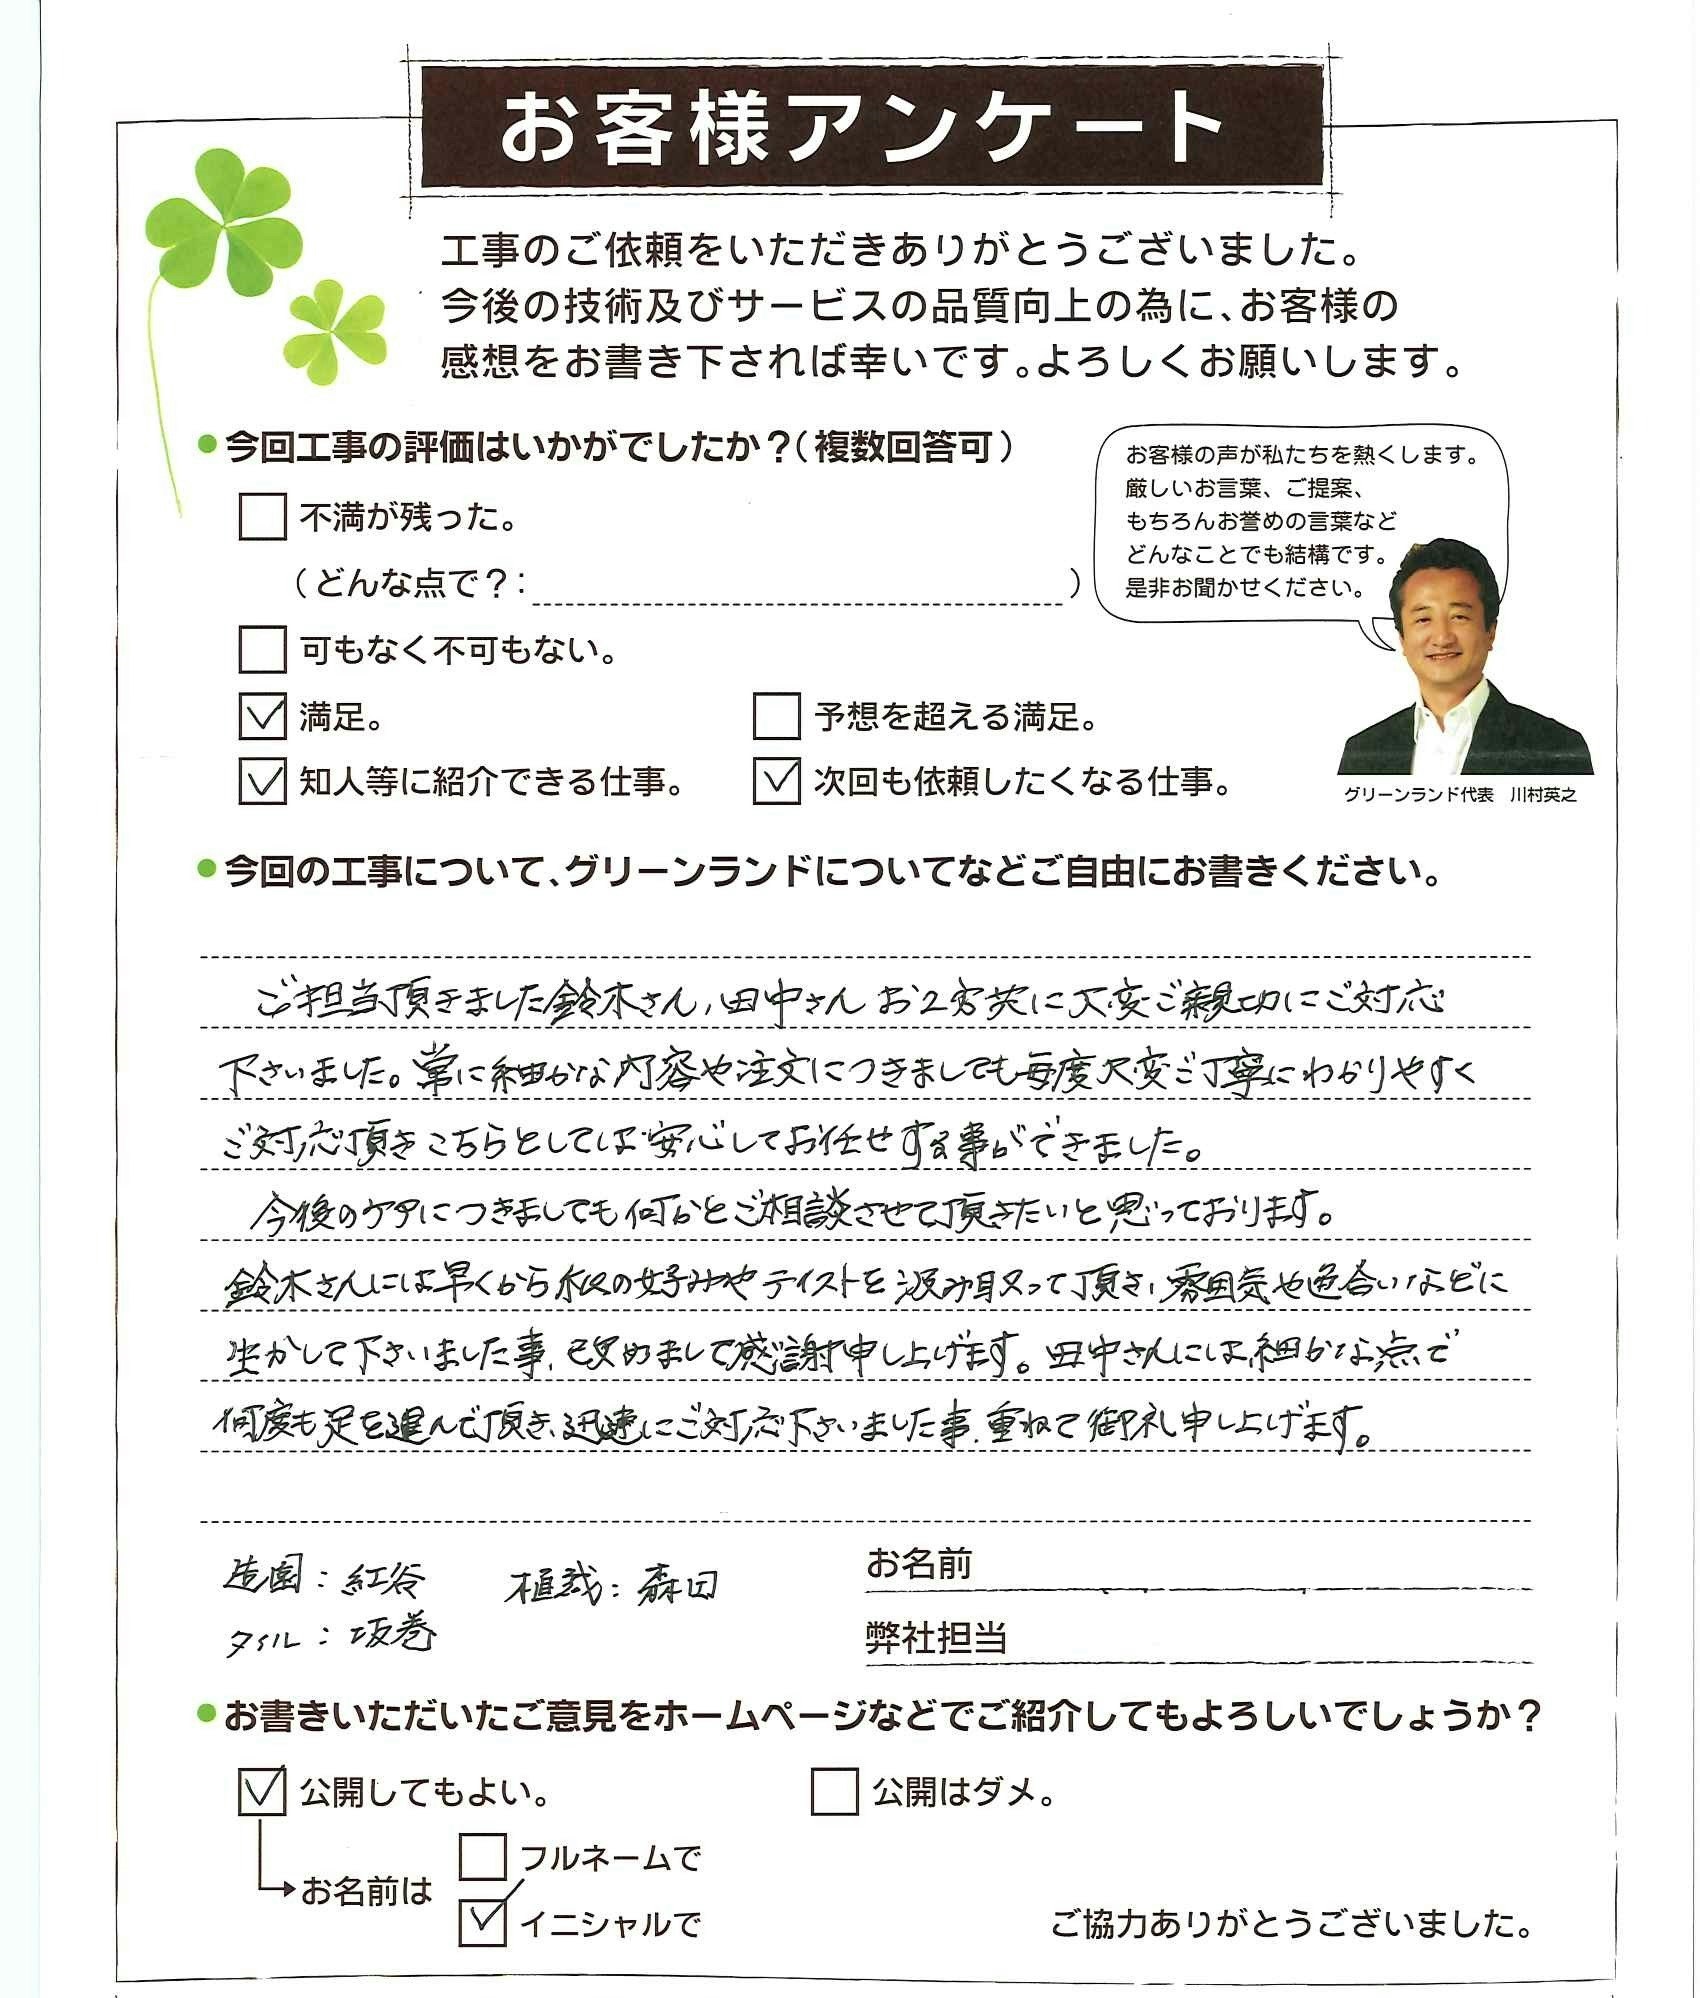 お客様アンケート
工事のご依頼をいただきありがとうございました。
今後の技術及びサービスの品質向上の為に、お客様の
感想をお書き下されば幸いです。よろしくお願いします。
●今回工事の評価はいかがでしたか?(複数回答可)
不満が残った。
(どんな点で?: )
可もなく不可もない。
満足。
予想を超える満足。
知人等に紹介できる仕事。
次回も依頼したくなる仕事。
お客様の声が私たちを熱くします。
厳しいお言葉、ご提案、
もちろんお誉めの言葉など
どんなことでも結構です。
是非お聞かせください。
グリーンランド代表 川村英之
●今回の工事について、グリーンランドについてなどご自由にお書きください。
ご担当頂きました鈴木さん、田中さん お2方共に大変ご親切にご対応
下さいました。常に細かな内容や注文につきましても毎度大変ご丁寧にわかりやすく
ご対応頂きこちらとしては安心してお任せする事ができました。
今後のケアにつきましても何かとご相談させて頂きたいと思っております。
鈴木さんには早くから私の好みやテイストを汲み取って頂き、雰囲気や色合いなどに
生かして下さいました事、改めまして感謝申し上げます。田中さんには細かな点で
何度も足を運んで頂き、迅速にご対応下さいました事、重ねて御礼申し上げます。
造園:紅谷 植栽:森田
タイル:坂巻
お名前
弊社担当
●お書きいただいたご意見をホームページなどでご紹介してもよろしいでしょうか?
公開してもよい。
公開はダメ。
お名前は
フルネームで
イニシャルで
ご協力ありがとうございました。